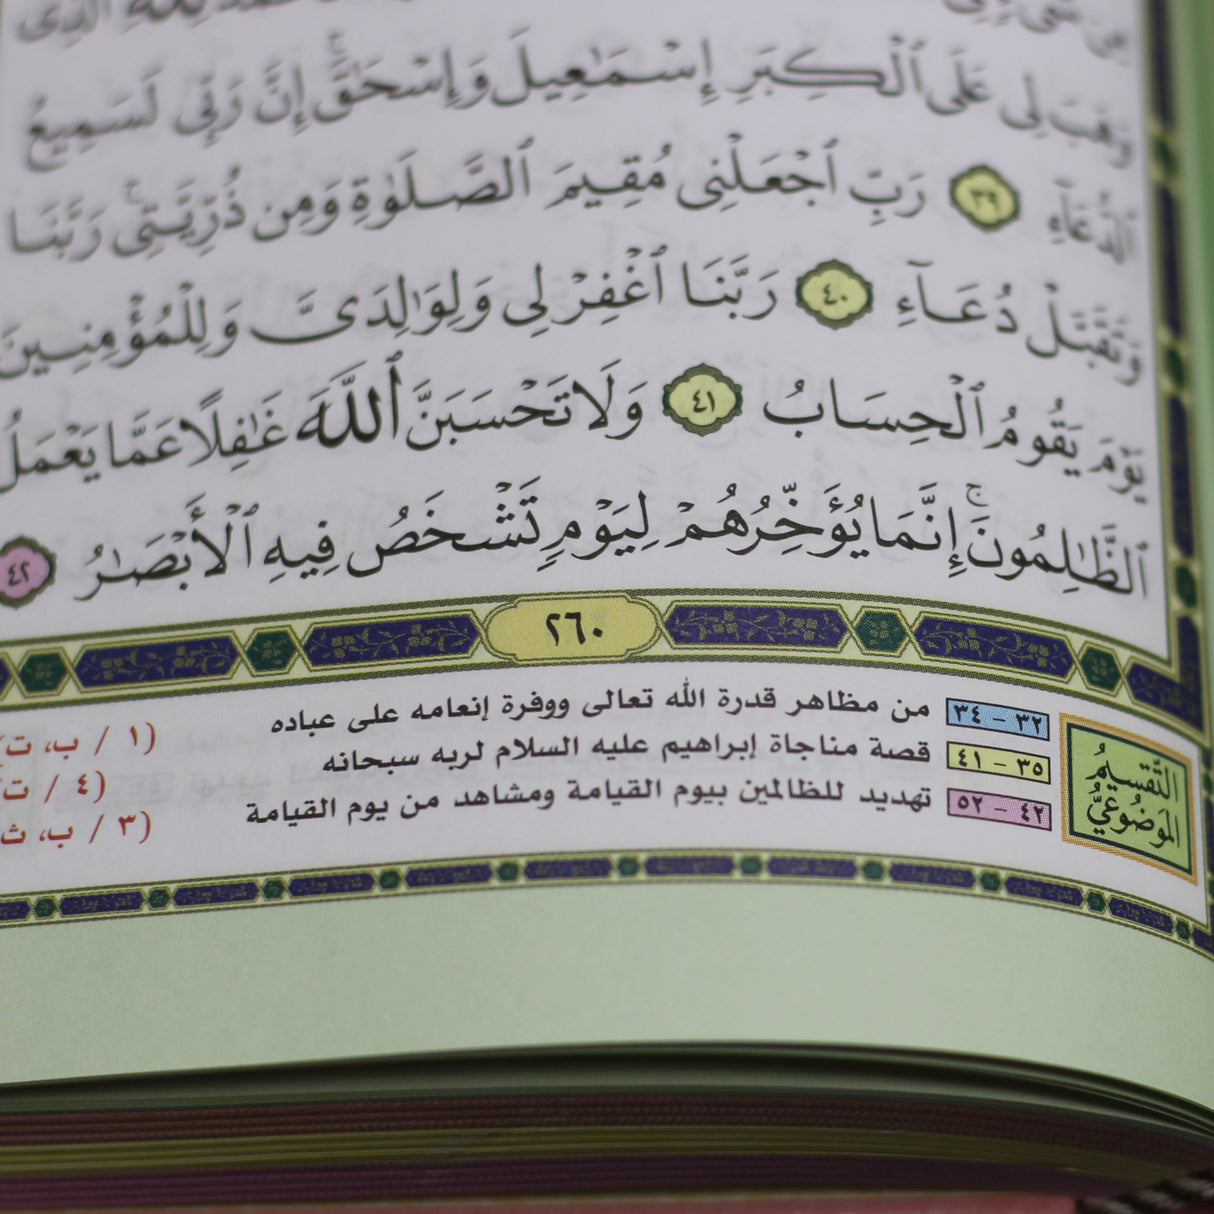 وَهَبَ لِى عَلَى ٱلْكِبَرِ إِسْمَٰعِيلَ وَإِسْحَٰقَۚ إِنَّ رَبِّى لَسَمِيعُ
ٱلدُّعَآءِ ٣٩ رَبِّ ٱجْعَلْنِى مُقِيمَ ٱلصَّلَوٰةِ وَمِن ذُرِّيَّتِىۚ رَبَّنَا
وَتَقَبَّلْ دُعَآءِ ٤٠ رَبَّنَا ٱغْفِرْ لِى وَلِوَٰلِدَىَّ وَلِلْمُؤْمِنِينَ
يَوْمَ يَقُومُ ٱلْحِسَابُ ٤١ وَلَا تَحْسَبَنَّ ٱللَّهَ غَٰفِلًا عَمَّا يَعْمَلُ
ٱلظَّٰلِمُونَۚ إِنَّمَا يُؤَخِّرُهُمْ لِيَوْمٍ تَشْخَصُ فِيهِ ٱلْأَبْصَٰرُ ٤٢
٢٦٠
التَّقسِيمُ
المَوضُوعِيُّ
٣٢ - ٣٤ من مظاهر قدرة الله تعالى ووفرة إنعامه على عباده (١ / ب، ت)
٣٥ - ٤١ قصة مناجاة إبراهيم عليه السلام لربه سبحانه (٤ / ت
٤٢ - ٥٢ تهديد للظالمين بيوم القيامة ومشاهد من يوم القيامة (٣ / ب، ث